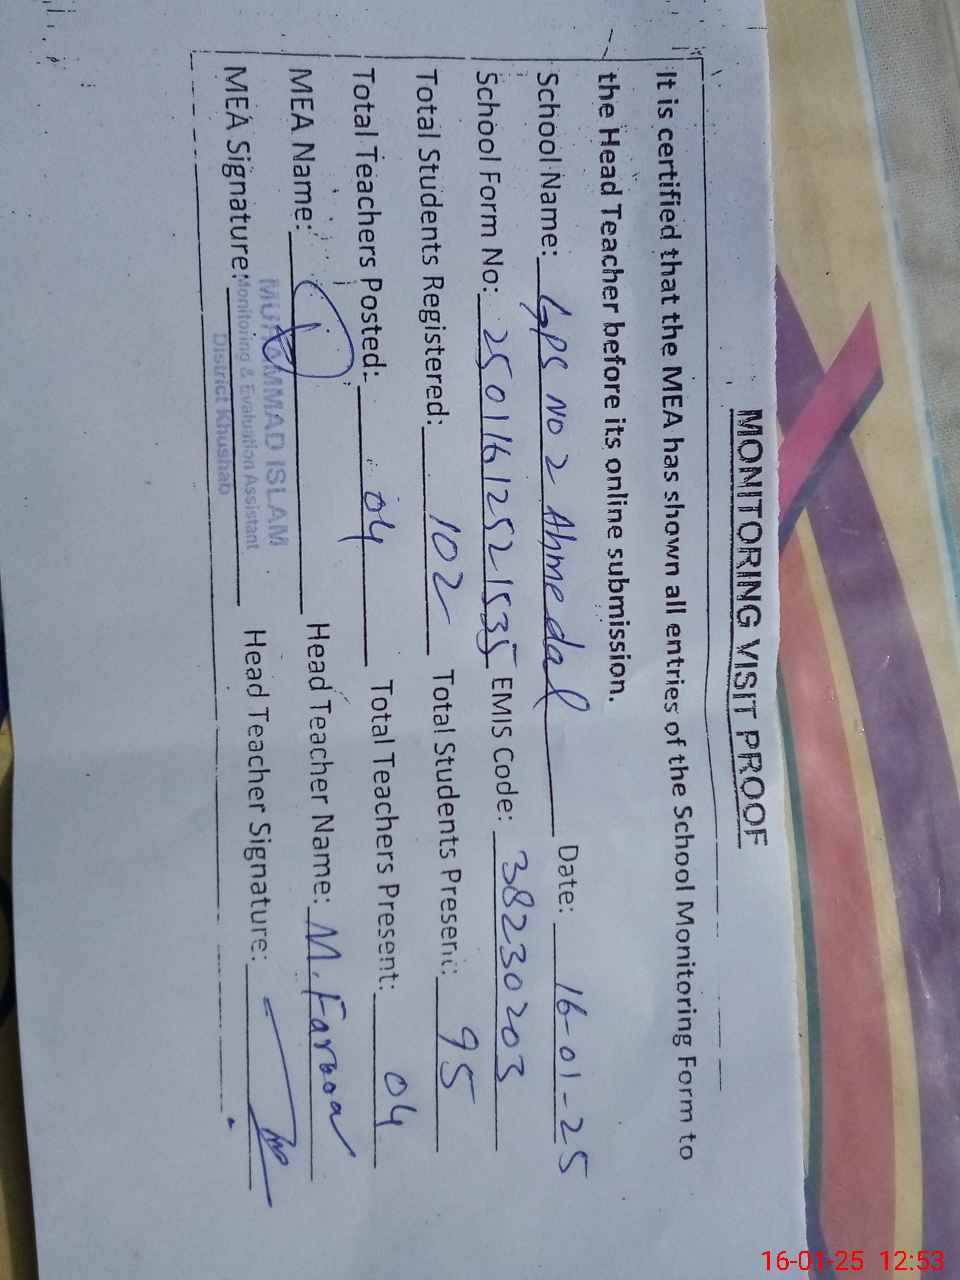 MONITORING VISIT PROOF
It is certified that the MEA has shown all entries of the School Monitoring Form to
the Head Teacher before its online submission.
School Name: GPS NO 2 Ahmedal Date: 16-01-25
School Form No: 2501612521535 EMIS Code: 38230203
Total Students Registered: 102 Total Students Present: 95
Total Teachers Posted: 04 Total Teachers Present: 04
MEA Name: Head Teacher Name: M. Farooq
MUHAMMAD ISLAM
MEA Signature: Head Teacher Signature:
Monitoring & Evaluation Assistant
District Khushab
16-01-25 12:53